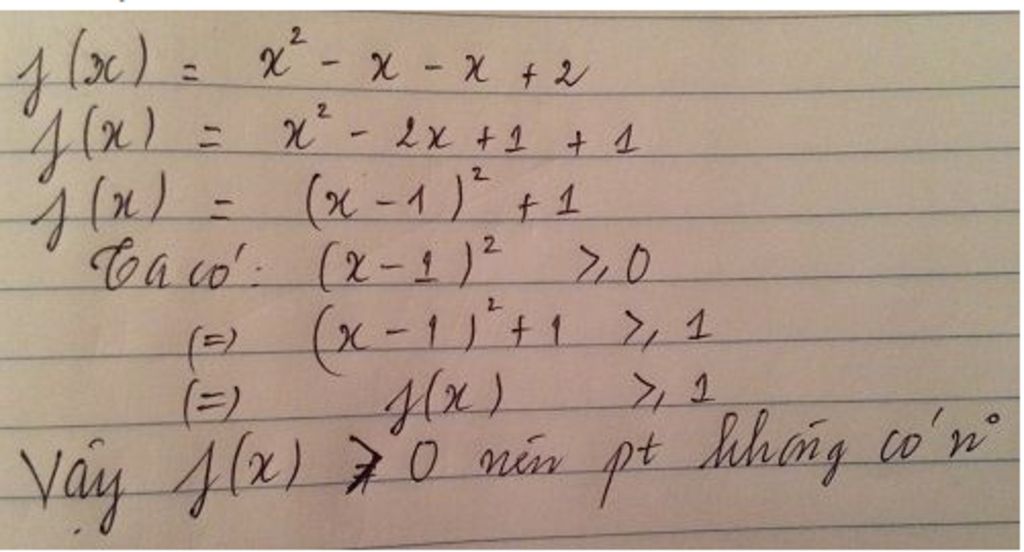 f(x) = x² - x - x + 2
f(x) = x² - 2x + 1 + 1
f(x) = (x - 1)² + 1
Ta có: (x - 1)² ⩾ 0
(=) (x - 1)² + 1 ⩾ 1
(=) f(x) ⩾ 1
Vậy f(x) ≠ 0 nên pt không có n°